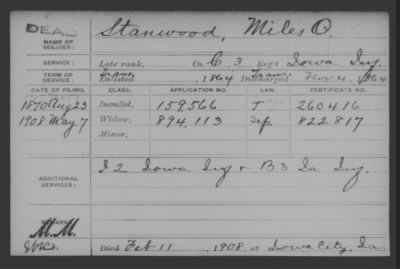 DEAD
NAME OF SOLDIER: Stanwood, Miles O.
SERVICE: Late rank, Co. C, 3 Reg't Iowa Inf.
TERM OF SERVICE: Enlisted Trans. 1864 Discharged Trans. Nov 4, 1864
DATE OF FILING. CLASS. APPLICATION NO. LAW. CERTIFICATE NO.
1870 Aug 23 Invalid, 159.566 260416
1908 May 7 Widow, 894.113 822.817
Minor,
ADDITIONAL SERVICES: I 2 Iowa Inf + B 3 Ia Inf.
REMARKS:
M.M.
Died Feb 11, 1908, at Iowa City, Ia.